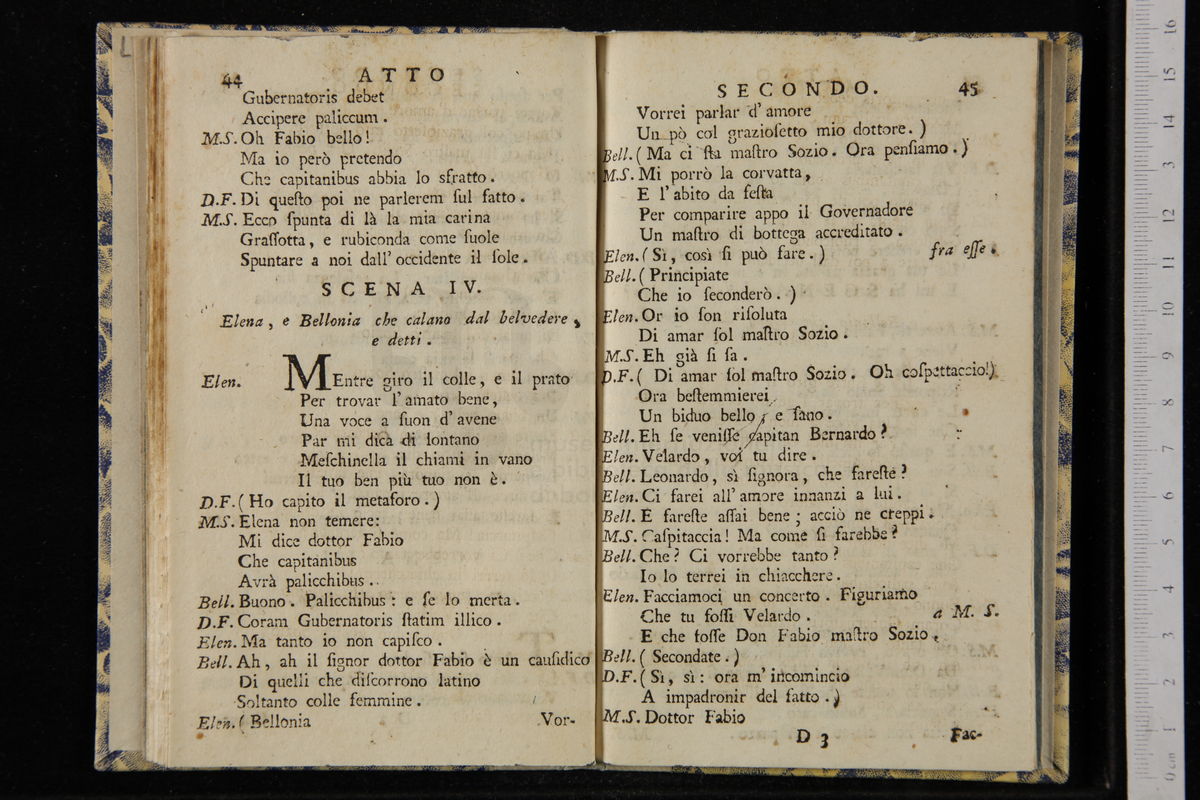 44 ATTO
Gubernatoris debet
Accipere paliccum.
M.S. Oh Fabio bello!
Ma io però pretendo
Che capitanibus abbia lo sfratto.
D.F. Di queſto poi ne parlerem ſul fatto.
M.S. Ecco ſpunta di là la mia carina
Graſſotta, e rubiconda come ſuole
Spuntare a noi dall' occidente il ſole.
SCENA IV.
Elena, e Bellonia che calano dal belvedere,
e detti.
Elen. MEntre giro il colle, e il prato
Per trovar l' amato bene,
Una voce a ſuon d' avene
Par mi dica di lontano
Meſchinella il chiami in vano
Il tuo ben più tuo non è.
D.F. (Ho capito il metaforo.)
M.S. Elena non temere:
Mi dice dottor Fabio
Che capitanibus
Avrà palicchibus..
Bell. Buono. Palicchibus: e ſe lo merta.
D.F. Coram Gubernatoris ſtatim illico.
Elen. Ma tanto io non capiſco.
Bell. Ah, ah il ſignor dottor Fabio è un cauſidico
Di quelli che diſcorrono latino
Soltanto colle femmine.
Elen. (Bellonia Vor-
SECONDO. 45
Vorrei parlar d' amore
Un pò col grazioſetto mio dottore.)
Bell. (Ma ci ſta maſtro Sozio. Ora penſiamo.)
M.S. Mi porrò la corvatta,
E l' abito da feſta
Per comparire appo il Governadore
Un maſtro di bottega accreditato.
Elen. (Sì, così ſi può fare.) fra eſſe.
Bell. (Principiate
Che io ſeconderò.)
Elen. Or io ſon riſoluta
Di amar ſol maſtro Sozio.
M.S. Eh già ſi ſa.
D.F. (Di amar ſol maſtro Sozio. Oh coſpettaccio!)
Ora beſtemmierei
Un biduo bello, e ſano.
Bell. Eh ſe veniſſe capitan Bernardo?
Elen. Velardo, voi tu dire.
Bell. Leonardo, sì ſignora, che fareſte?
Elen. Ci farei all' amore innanzi a lui.
Bell. E fareſte aſſai bene; acciò ne creppi.
M.S. Caſpitaccia! Ma come ſi farebbe?
Bell. Che? Ci vorrebbe tanto?
Io lo terrei in chiacchere.
Elen. Facciamoci un concerto. Figuriamo
Che tu foſſi Velardo. a M. S.
E che foſſe Don Fabio maſtro Sozio.
Bell. (Secondate.)
D.F. (Sì, sì: ora m' incomincio
A impadronir del fatto.)
M.S. Dottor Fabio
D 3 Fac-
L
0 cm 1 2 3 4 5 6 7 8 9 10 11 12 13 14 15 16